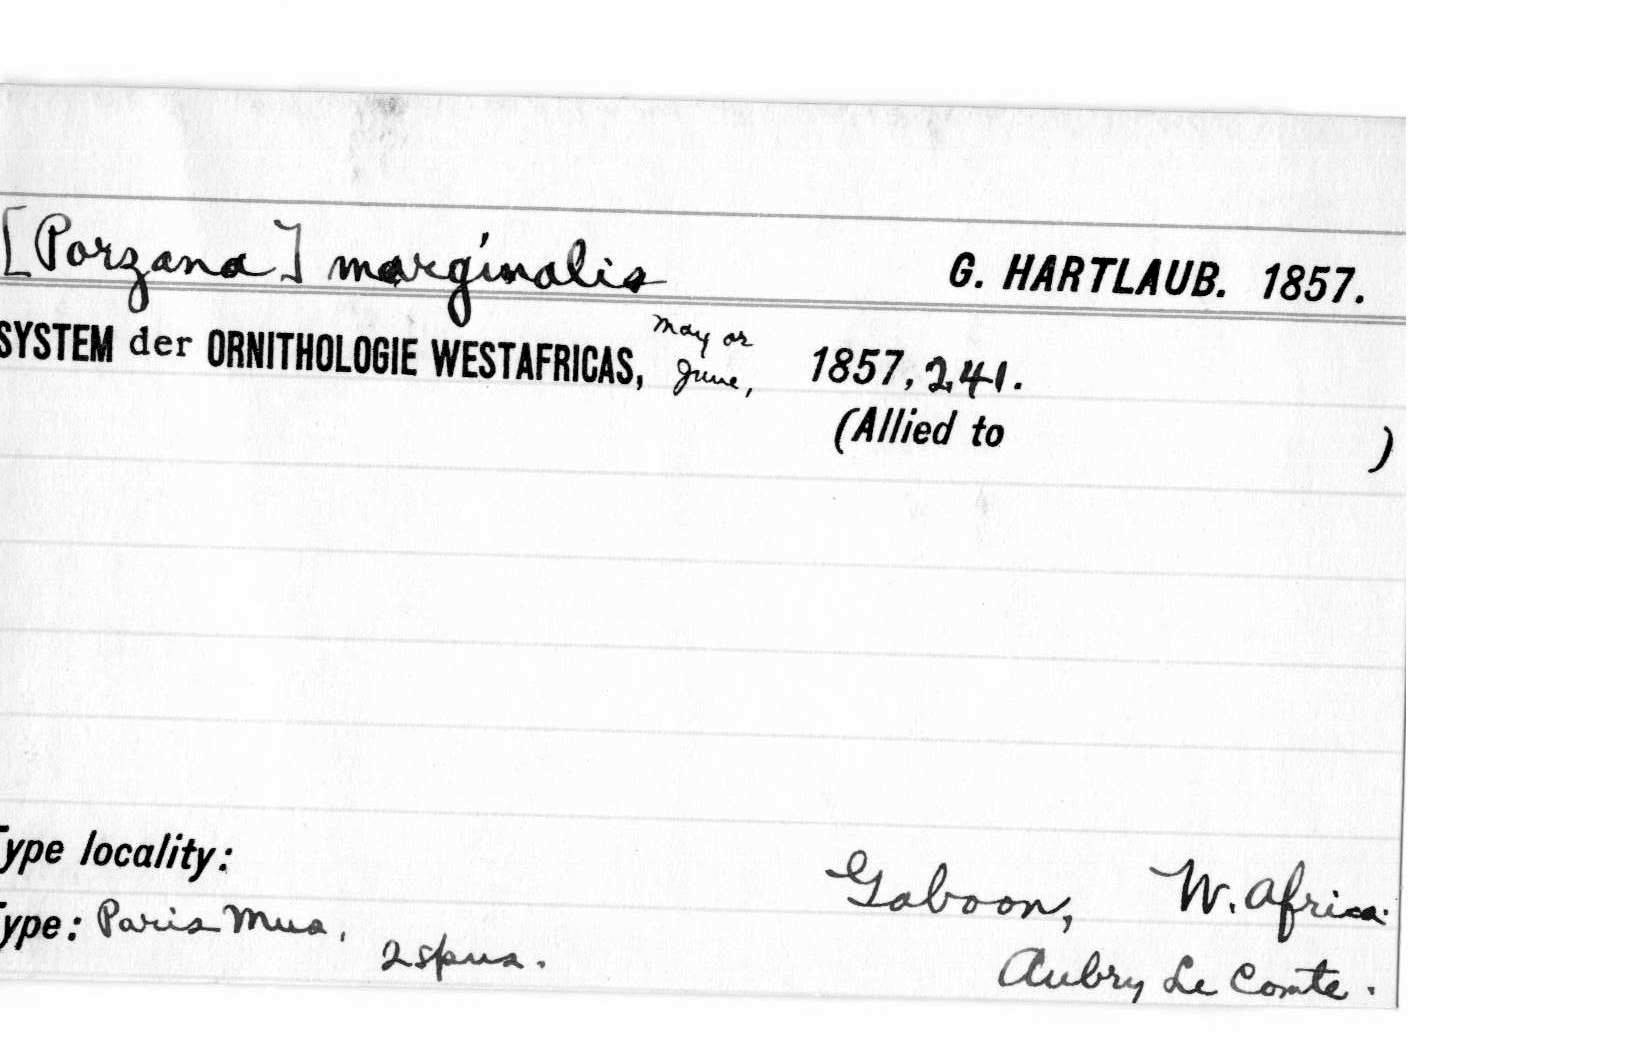 [Porzana] marginalis G. HARTLAUB. 1857.
SYSTEM der ORNITHOLOGIE WESTAFRICAS, May or June, 1857, 241.
(Allied to )
Type locality: Gaboon, W. Africa.
Type: Paris Mus. 2 spms. Aubry Le Comte.